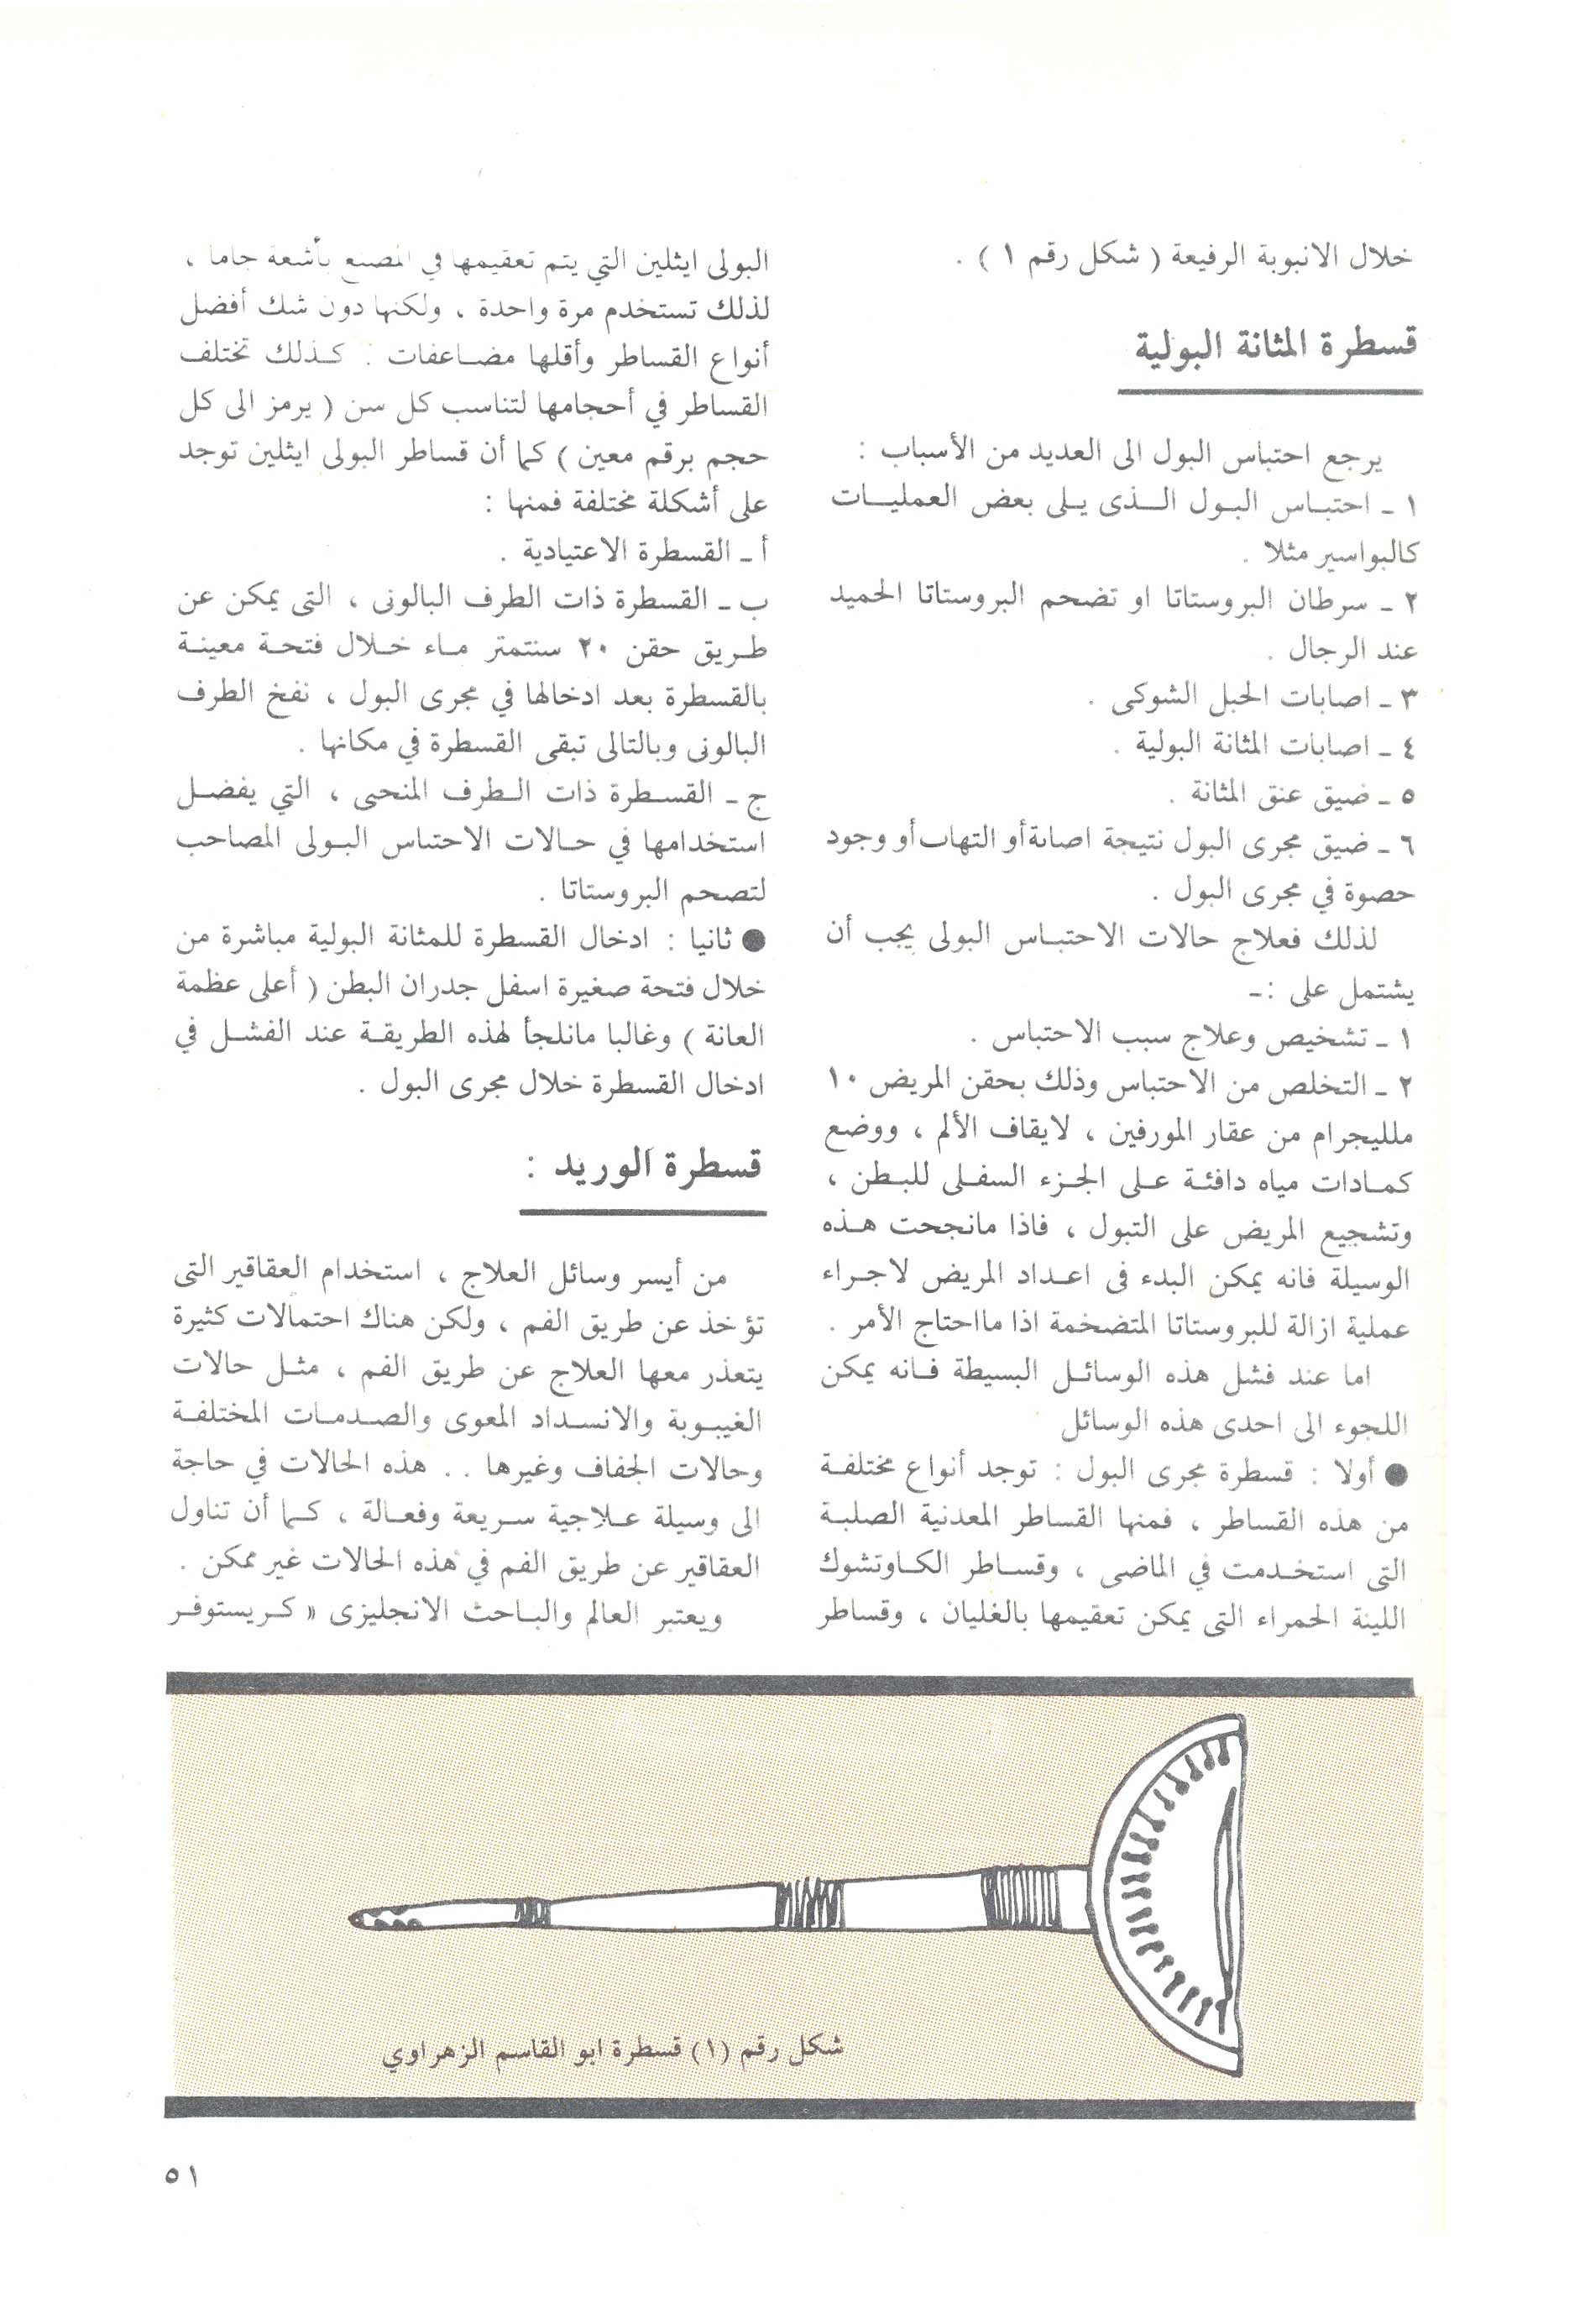 خلال الانبوبة الرفيعة ( شكل رقم ١ ) .
قسطرة المثانة البولية
يرجع احتباس البول الى العديد من الأسباب :
١ - احتباس البول الذى يلى بعض العمليات
كالبواسير مثلا .
٢ - سرطان البروستاتا او تضخم البروستاتا الحميد
عند الرجال .
٣ - اصابات الحبل الشوكى .
٤ - اصابات المثانة البولية .
٥ - ضيق عنق المثانة .
٦ - ضيق مجرى البول نتيجة اصابة أو التهاب أو وجود
حصوة في مجرى البول .
لذلك فعلاج حالات الاحتباس البولى يجب أن
يشتمل على :-
١ - تشخيص وعلاج سبب الاحتباس .
٢ - التخلص من الاحتباس وذلك بحقن المريض ١٠
ملليجرام من عقار المورفين ، لايقاف الألم ، ووضع
كمادات مياه دافئة على الجزء السفلى للبطن ،
وتشجيع المريض على التبول ، فاذا مانجحت هذه
الوسيلة فانه يمكن البدء فى اعداد المريض لاجراء
عملية ازالة للبروستاتا المتضخمة اذا مااحتاج الأمر .
اما عند فشل هذه الوسائل البسيطة فانه يمكن
اللجوء الى احدى هذه الوسائل
● أولا : قسطرة مجرى البول : توجد أنواع مختلفة
من هذه القساطر ، فمنها القساطر المعدنية الصلبة
التى استخدمت في الماضى ، وقساطر الكاوتشوك
اللينة الحمراء التى يمكن تعقيمها بالغليان ، وقساطر
البولى ايثلين التي يتم تعقيمها في المصنع بأشعة جاما ،
لذلك تستخدم مرة واحدة ، ولكنها دون شك أفضل
أنواع القساطر وأقلها مضاعفات . كذلك تختلف
القساطر في أحجامها لتناسب كل سن ( يرمز الى كل
حجم برقم معين ) كما أن قساطر البولى ايثلين توجد
على أشكلة مختلفة فمنها :
أ - القسطرة الاعتيادية .
ب - القسطرة ذات الطرف البالونى ، التى يمكن عن
طريق حقن ٢٠ سنتمتر ماء خلال فتحة معينة
بالقسطرة بعد ادخالها في مجرى البول ، نفخ الطرف
البالونى وبالتالى تبقى القسطرة في مكانها .
ج - القسطرة ذات الطرف المنحى ، التي يفضل
استخدامها في حالات الاحتباس البولى المصاحب
لتضخم البروستاتا .
● ثانيا : ادخال القسطرة للمثانة البولية مباشرة من
خلال فتحة صغيرة اسفل جدران البطن ( أعلى عظمة
العانة ) وغالبا مانلجأ لهذه الطريقة عند الفشل في
ادخال القسطرة خلال مجرى البول .
قسطرة الوريد :
من أيسر وسائل العلاج ، استخدام العقاقير التى
تؤخذ عن طريق الفم ، ولكن هناك احتمالات كثيرة
يتعذر معها العلاج عن طريق الفم ، مثل حالات
الغيبوبة والانسداد المعوى والصدمات المختلفة
وحالات الجفاف وغيرها . . هذه الحالات في حاجة
الى وسيلة علاجية سريعة وفعالة ، كما أن تناول
العقاقير عن طريق الفم في هذه الحالات غير ممكن .
ويعتبر العالم والباحث الانجليزى « كريستوفر
شكل رقم (١) قسطرة ابو القاسم الزهراوي
٥١